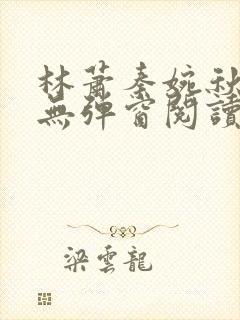 林蕭秦婉秋
無彈窗閱讀
梁雲龍